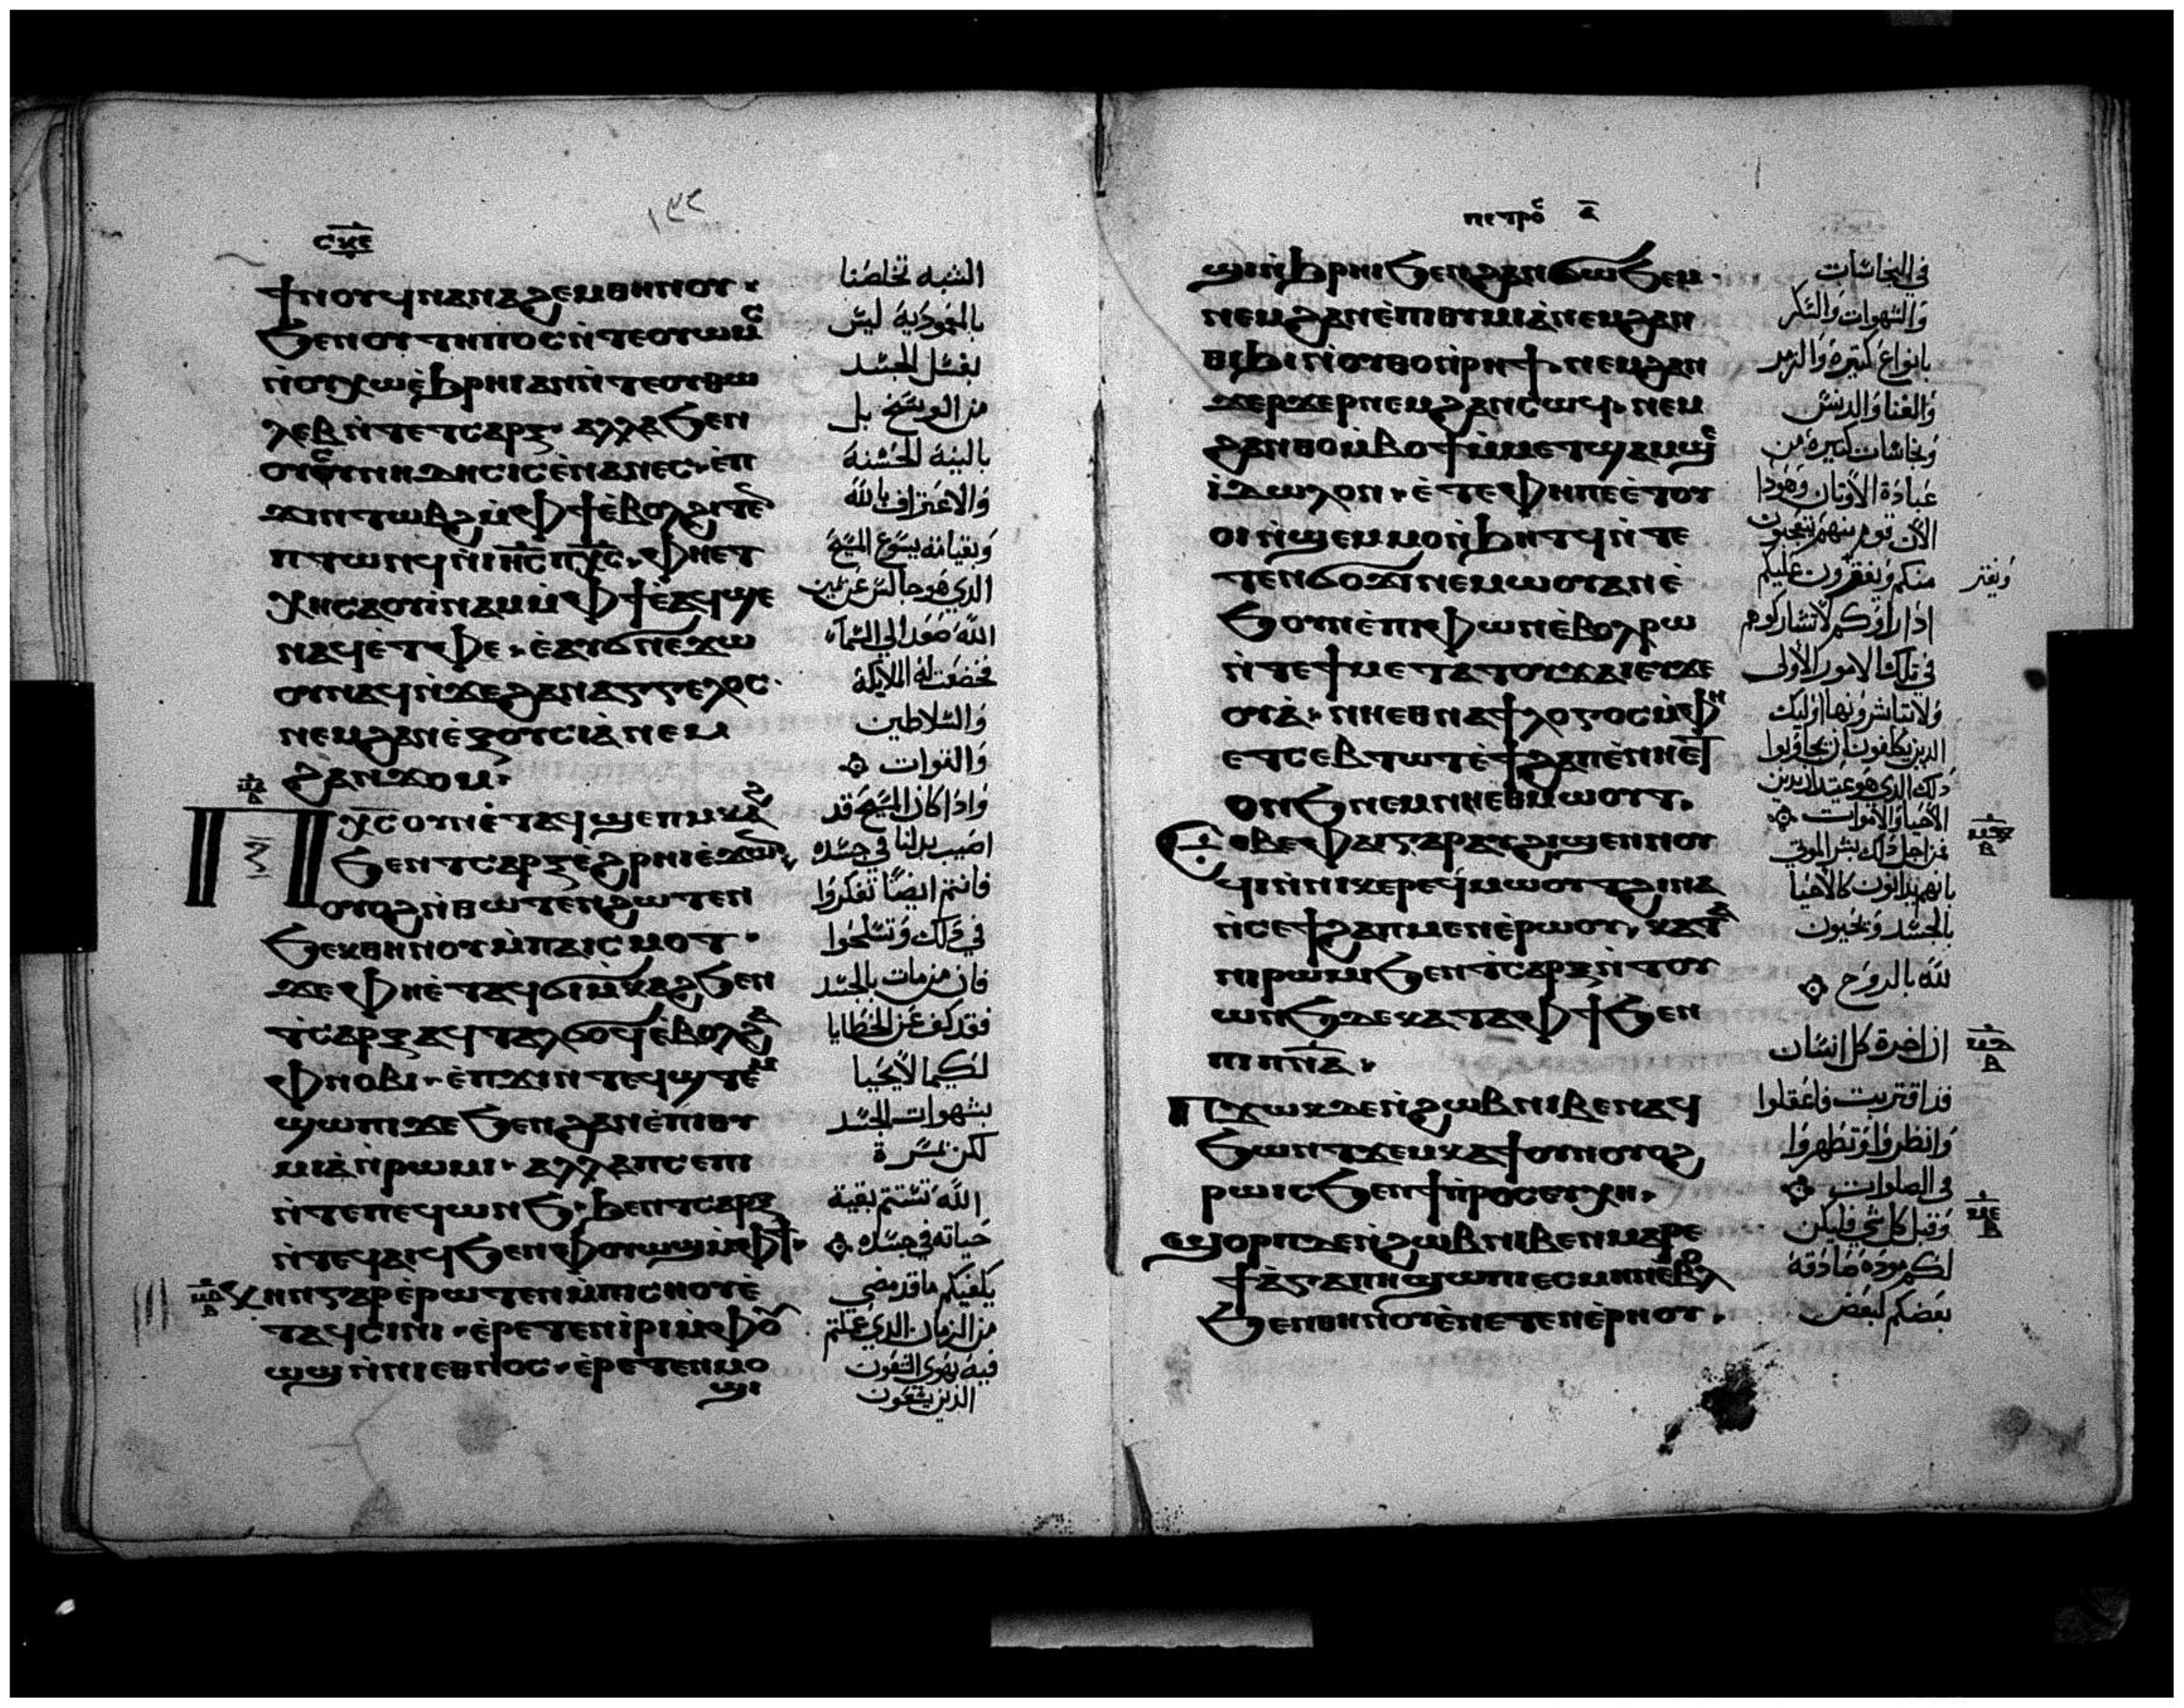 ⲥⲕⲉ
ϯⲛⲟⲩϥⲛⲁⲛⲁϩⲉⲙⲑⲏⲛⲟⲩ·
ϧⲉⲛⲟⲩⲧⲏⲡⲟⲥⲛ̀ⲧⲉⲟⲩⲱⲙⲥ
ⲛ̀ⲟⲩⲭⲱⲉ̀ϧⲣⲏⲓⲁⲛⲛ̀ⲧⲉⲟⲩⲑⲱ
ⲗⲉⲃⲛ̀ⲧⲉⲧⲥⲁⲣⲝ·ⲁⲗⲗⲁϧⲉⲛ
ⲟⲩⲥⲩⲛⲏⲇⲏⲥⲓⲥⲉ̀ⲛⲁⲛⲉⲥ·ⲉ̀ⲡ
ϫⲓⲛⲧⲱⲃϩⲙ̀ⲫϯⲉ̀ⲃⲟⲗϩⲓⲧⲉⲛ
ⲡⲧⲱⲛϥⲛ̀ⲓⲏⲥⲡⲭⲥ·ⲫⲏⲉⲧ
ⲭⲏⲥⲁⲟⲩⲓ̀ⲛⲁⲙⲙ̀ⲫϯⲉ̀ⲁϥϣⲉ
ⲛⲁϥⲉ̀ⲧⲫⲉ·ⲉ̀ⲁⲩϭⲛⲉϫⲱ
ⲟⲩⲛⲁϥⲛ̀ϫⲉϩⲁⲛⲁⲅⲅⲉⲗⲟⲥ·
ⲛⲉⲙϩⲁⲛⲉ̀ⲝⲟⲩⲥⲓⲁ̀ⲛⲉⲙ
ϩⲁⲛϫⲟⲙ·
ⲡⲭⲥⲟⲩⲛⲉ̀ⲧⲁϥϣⲉⲡⲙⲕⲁϩ
ϧⲉⲛⲧⲥⲁⲣⲝⲉϩⲣⲏⲓⲉ̀ϫⲱⲛ
ⲟⲩⲟϩⲛ̀ⲑⲱⲧⲉⲛϩⲱⲧⲉⲛ
ϧⲉⲕⲑⲏⲛⲟⲩⲙ̀ⲡⲁⲓⲥⲙⲟⲧ·
ϫⲉⲫⲏⲉ̀ⲧⲁϥϭⲓⲙ̀ⲕⲁϩϧⲉⲛ
ⲧ̀ⲥⲁⲣⲝⲁϥⲧⲁⲗϭⲟϥⲉ̀ⲃⲟⲗϩⲁ
ⲫⲛⲟⲃⲓ·ⲉ̀ⲡϫⲓⲛⲧⲉϥϣⲧⲉⲙ
ϣⲱⲡⲓϫⲉϧⲉⲛϩⲁⲛⲉ̀ⲡⲓⲑⲩ
ⲙⲓⲁ̀ⲛ̀ⲣⲱⲙⲓ·ⲁⲗⲗⲁⲡⲥⲉⲡⲓ
ⲛ̀ⲧⲉⲡⲉϥⲱⲛϧ·ϧⲉⲛⲧⲥⲁⲣⲝ
ⲛ̀ⲧⲉϥⲁⲓϥϧⲉⲛⲫⲟⲩⲱϣⲙ̀ⲫϯ·
ⲕⲏⲛⲅⲁⲣⲉ̀ⲣⲱⲧⲉⲛⲙ̀ⲡⲓⲥⲏⲟⲩⲉ̀
ⲧⲁϥⲥⲓⲛⲓ·ⲉ̀ⲣⲉⲧⲉⲛⲓ̀ⲣⲓⲙ̀ⲫⲟⲩ
ⲱϣⲛ̀ⲛⲓⲉⲑⲛⲟⲥ·ⲉ̀ⲣⲉⲧⲉⲛⲙⲟ
ϣⲓ
١٣٢
الشبه تخلصنا
بالمعمودية ليس
بغسل الجسد
من الوسخ بل
بالنية الحسنة
والاعتراف بالله
وبقيامة يسوع المسيح
الذي هو جالس عن يمين
الله صعد الي السماء
فخضعت له الملايكة
والسلاطين
والقوات
واذا كان المسيح قد
اصيب بدلنا في جسده
فانتم ايضًا تفكروا
في ذلك وتسلحوا
فان من مات بالجسد
فقد كف عن الخطايا
لكيما لا يحيا
بشهوات الجسد
لكن بمسرة
الله تستتم بقية
حياته في جسده
يكفيكم ما قد مضي
من الزمان الذي عملتم
فيه بهوى الشعوب
ⲡⲉⲧⲣⲟⲥ ⲁ
ϣⲓⲛ̀ϧⲣⲏⲓϧⲉⲛϩⲁⲛϭⲱϧⲉⲙ·
ⲛⲉⲙϩⲁⲛⲉ̀ⲡⲓⲑⲩⲙⲓⲁ̀ⲛⲉⲙϩⲁⲛ
ⲑⲓϧⲓⲛ̀ⲟⲩⲑⲟⲛ̀ⲣⲏϯ·ⲛⲉⲙϩⲁⲛ
ϫⲉⲣϫⲉⲣⲛⲉⲙϩⲁⲛⲥⲱϥ·ⲛⲉⲙ
ϩⲁⲛⲃⲟⲧϯⲙ̀ⲙⲉⲧϣⲁⲙϣⲉ
ⲓ̀ⲇⲱⲗⲟⲛ·ⲉ̀ⲧⲉⲫⲏⲡⲉⲉ̀ⲧⲟⲩ
ⲟⲓⲛ̀ϣⲉⲙⲙⲟⲛ̀ϧⲏⲧϥⲛ̀ⲧⲉ
ⲧⲉⲛϭⲟϫⲓⲛⲉⲙⲱⲟⲩⲁⲛⲉ̀
ϧⲟⲩⲛⲉ̀ⲡⲓⲫⲱⲛⲉ̀ⲃⲟⲗⲣⲱ
ⲛ̀ⲧⲉϯⲙⲉⲧⲁⲧⲟⲩϫⲁⲓⲉⲩϫⲉ
ⲟⲩⲁ̀·ⲛⲏⲉⲑⲛⲁϯⲗⲟⲅⲟⲥⲙ̀ⲫⲏ
ⲉⲧⲥⲉⲃⲧⲱⲧⲉ̀ϯϩⲁⲡⲉ̀ⲛⲏⲉⲧ
ⲟⲛϧⲛⲉⲙⲛⲏⲉⲑⲙⲱⲟⲩⲧ·
ⲉⲑⲃⲉⲫⲁⲓⲅⲁⲣⲁⲩϩⲓϣⲉⲛⲛⲟⲩ
ϥⲓⲛ̀ⲛⲓⲕⲉⲣⲉϥⲙⲱⲟⲩⲧϩⲓⲛⲁ
ⲛ̀ⲥⲉϯϩⲁⲡⲙⲉⲛⲉ̀ⲣⲱⲟⲩ·ⲕⲁⲧⲁ
ⲛⲓⲣⲱⲙⲓϧⲉⲛⲧ̀ⲥⲁⲣⲝⲛ̀ⲧⲟⲩ
ⲱⲛϧⲇⲉⲕⲁⲧⲁⲫϯϧⲉⲛ
ⲡⲓⲡⲛⲁ·
ⲡϫⲱⲕⲇⲉⲛ̀ϩⲱⲃⲛⲓⲃⲉⲛⲁϥ
ϧⲱⲛⲧϫⲉⲙⲕⲁϯⲟⲩⲛⲟⲩⲟϩ
ⲣⲱⲓⲥϧⲉⲛϯⲡⲣⲟⲥⲉⲩⲭⲏ·
ϣⲟⲣⲡⲇⲉⲛ̀ϩⲱⲃⲛⲓⲃⲉⲛⲙⲁⲣⲉ
ϯⲁ̀ⲅⲁⲡⲏϣⲱⲡⲓⲉⲥⲙⲏⲛⲉ̀ⲃⲟⲗ
ϧⲉⲛⲑⲏⲛⲟⲩⲉ̀ⲛⲉⲧⲉⲛⲉ̀ⲣⲏⲟⲩ·
في النجاسات
والشهوات والسكر
بانواع كثيرة والزمر
والغنا والدنس
ونجاسات كثيرة من
عبادة الاوتان وهوذا
الان قوم منهم يتعجبون
منكم ويفترون عليكم
اذا راوكم لا تشاركوهم
في تلك الامور الاولى
الاحيا والاموات
من اجل ذلك بشر الموتي
بانهم يدانون كالاحيا
بالجسد ويحيون
لله بالروح
ان اخرة كل انسان
قد اقتربت فاعقلوا
وانظروا وتطهروا
في الصلوات
وقبل كل شي فليكن
لكم مودة صادقة
بعضكم لبعض